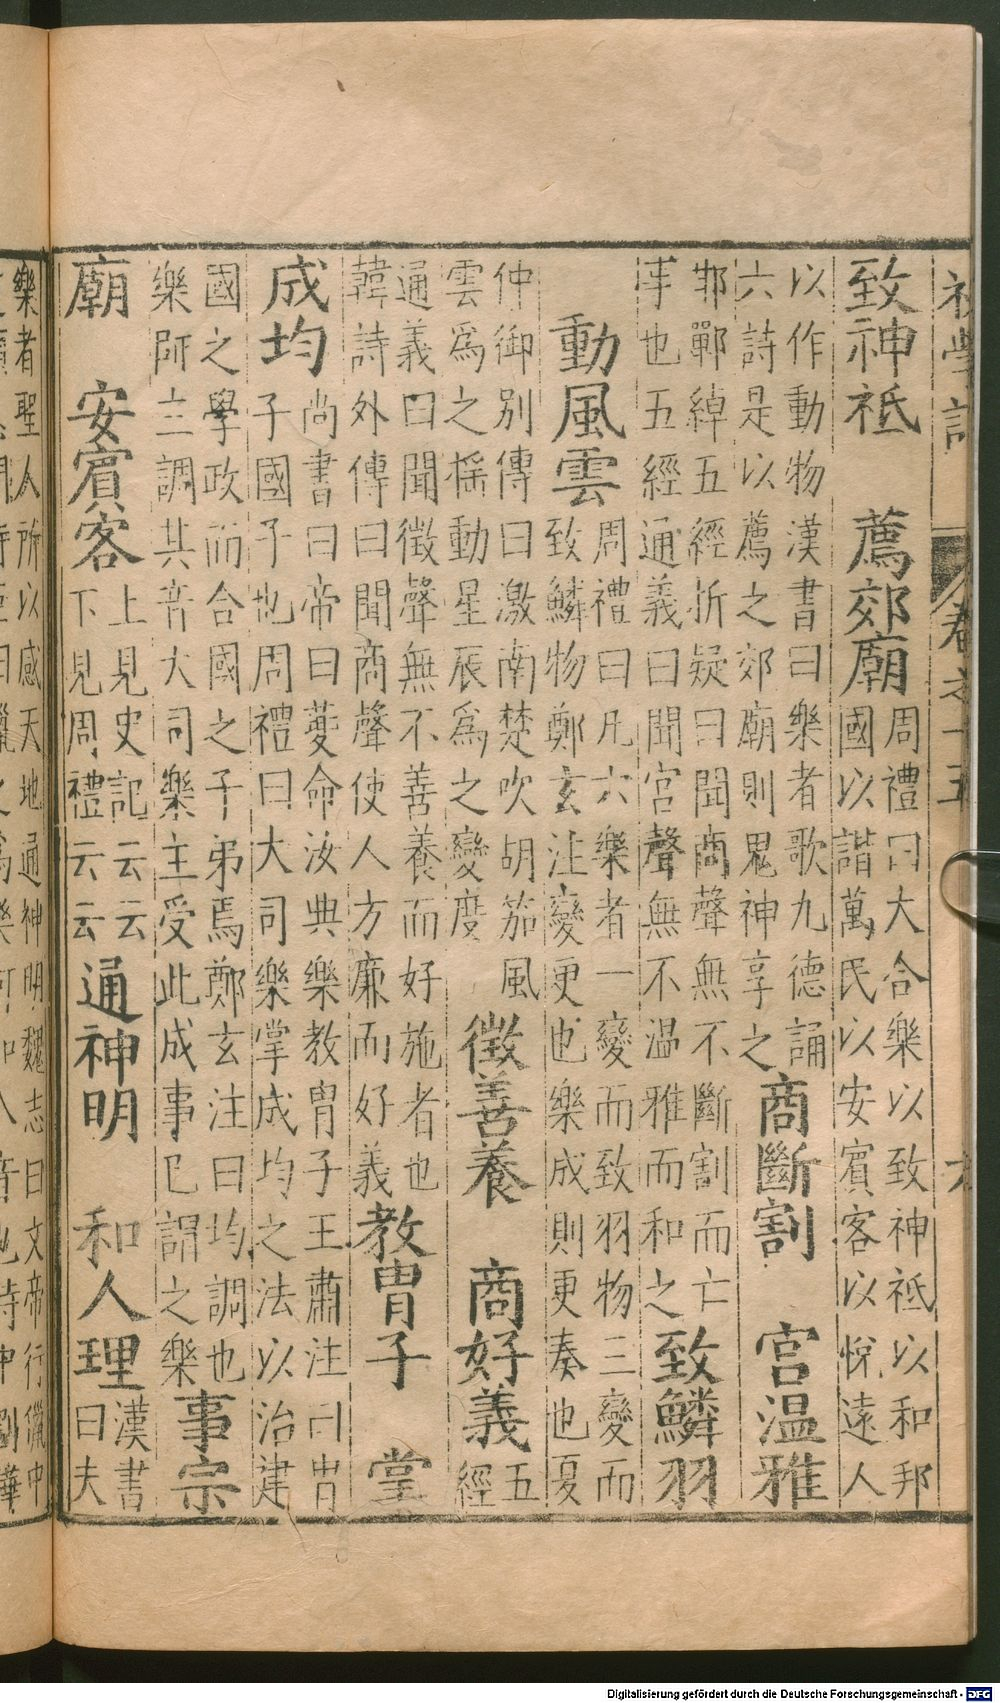 致神祇　薦郊廟　周禮曰大合樂以致神祇以和邦
國以諧萬民以安賓客以悅遠人
以作動物漢書曰樂者歌九德誦
六詩是以薦之郊廟則鬼神享之　商斷割　宮温雅
邯鄲綽五經折疑曰聞商聲無不斷割而亡
事也五經通義曰聞宮聲無不温雅而和之　致鱗羽
動風雲　周禮曰凡六樂者一變而致羽物三變而
致鱗物鄭玄注變更也樂成則更奏也夏
仲御別傳曰激南楚吹胡笳風
雲為之揺動星辰為之變度　徵善養　商好義　五
經
通義曰聞徵聲無不善養而好施者也
韓詩外傳曰聞商聲使人方廉而好義　教胄子　掌
成均　尚書曰帝曰夔命汝典樂教胄子王肅注曰胄
子國子也周禮曰大司樂掌成均之法以治建
國之學政而合國之子弟焉鄭玄注曰均調也
樂師主調其音大司樂主受此成事已謂之樂　事宗
廟　安賓客　上見史記云云
下見周禮云云　通神明　和人理　漢書
曰夫
樂者聖人所以感天地通神明魏志曰文帝行獵中
Digitalisierung gefördert durch die Deutsche Forschungsgemeinschaft - DFG